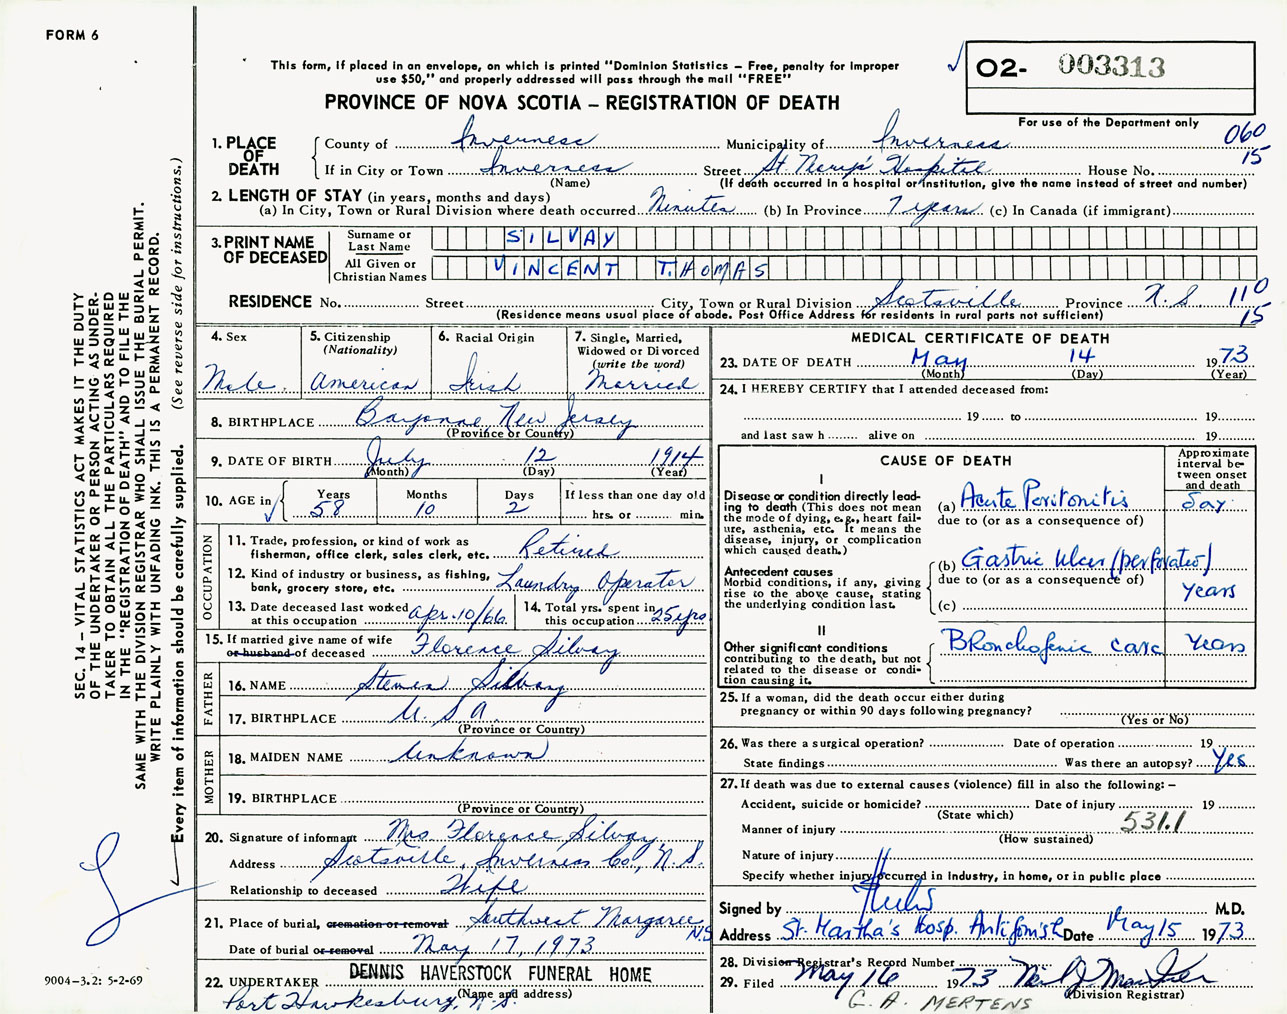 FORM 6
This form, if placed in an envelope, on which is printed "Dominion Statistics – Free, penalty for improper
use $50," and properly addressed will pass through the mail "FREE"
PROVINCE OF NOVA SCOTIA – REGISTRATION OF DEATH
O2- 003313
For use of the Department only
060
15
1. PLACE OF DEATH
County of Inverness Municipality of Inverness
If in City or Town Inverness Street St. Mary's Hospital House No.
(Name) (If death occurred in a hospital or institution, give the name instead of street and number)
2. LENGTH OF STAY (in years, months and days)
(a) In City, Town or Rural Division where death occurred Minutes (b) In Province 7 years (c) In Canada (if immigrant)
3. PRINT NAME OF DECEASED
Surname or Last Name SILVAY
All Given or Christian Names VINCENT THOMAS
RESIDENCE No. Street City, Town or Rural Division Scotsville Province N.S. 110
15
(Residence means usual place of abode. Post Office Address for residents in rural parts not sufficient)
4. Sex
Male
5. Citizenship
(Nationality)
American
6. Racial Origin
Irish
7. Single, Married,
Widowed or Divorced
(write the word)
Married
8. BIRTHPLACE Bayonne New Jersey
(Province or Country)
9. DATE OF BIRTH July 12 1914
(Month) (Day) (Year)
10. AGE in
Years Months Days If less than one day old
58 10 2 hrs. or min.
OCCUPATION
11. Trade, profession, or kind of work as
fisherman, office clerk, sales clerk, etc. Retired
12. Kind of industry or business, as fishing,
bank, grocery store, etc. Laundry Operator
13. Date deceased last worked
at this occupation Apr. 10/66
14. Total yrs. spent in
this occupation 25 yrs
15. If married give name of wife
or husband of deceased Florence Silvay
FATHER
16. NAME Steven Silvay
17. BIRTHPLACE U.S.A.
(Province or Country)
MOTHER
18. MAIDEN NAME Unknown
19. BIRTHPLACE
(Province or Country)
20. Signature of informant Mrs Florence Silvay
Address Scotsville, Inverness Co., N.S.
Relationship to deceased Wife
21. Place of burial, cremation or removal Southwest Margaree N.S
Date of burial or removal May 17, 1973
22. UNDERTAKER DENNIS HAVERSTOCK FUNERAL HOME
(Name and address)
Port Hawkesbury, N.S.
MEDICAL CERTIFICATE OF DEATH
23. DATE OF DEATH May 14 1973
(Month) (Day) (Year)
24. I HEREBY CERTIFY that I attended deceased from:
19 to 19
and last saw h alive on 19
CAUSE OF DEATH
Approximate interval between onset and death
I
Disease or condition directly lead-
ing to death (This does not mean
the mode of dying, e.g., heart fail-
ure, asthenia, etc. It means the
disease, injury, or complication
which caused death.)
(a) Acute Peritonitis day
due to (or as a consequence of)
Antecedent causes
Morbid conditions, if any, giving
rise to the above cause, stating
the underlying condition last.
(b) Gastric Ulcer (perforated)
due to (or as a consequence of)
years
(c)
II
Other significant conditions
contributing to the death, but not
related to the disease or condi-
tion causing it.
Bronchogenic carc years
25. If a woman, did the death occur either during
pregnancy or within 90 days following pregnancy?
(Yes or No)
26. Was there a surgical operation? Date of operation 19
State findings Was there an autopsy? Yes
27. If death was due to external causes (violence) fill in also the following: –
Accident, suicide or homicide? Date of injury 19
(State which)
Manner of injury 531.1
(How sustained)
Nature of injury
Specify whether injury occurred in industry, in home, or in public place
Signed by M.D.
Address St. Martha's Hosp. Antigonish Date May 15 1973
28. Division Registrar's Record Number
29. Filed May 16 1973
(Division Registrar)
G. A. MERTENS
SEC. 14 – VITAL STATISTICS ACT MAKES IT THE DUTY
OF THE UNDERTAKER OR PERSON ACTING AS UNDER-
TAKER TO OBTAIN ALL THE PARTICULARS REQUIRED
IN THE "REGISTRATION OF DEATH" AND TO FILE THE
SAME WITH THE DIVISION REGISTRAR WHO SHALL ISSUE THE BURIAL PERMIT.
WRITE PLAINLY WITH UNFADING INK. THIS IS A PERMANENT RECORD.
Every item of information should be carefully supplied. (See reverse side for instructions.)
9004–3.2: 5-2-69